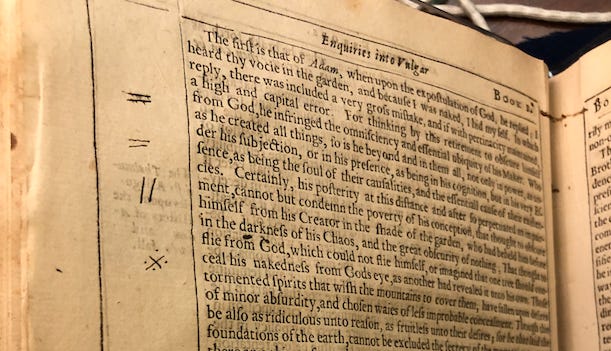 Enquiries into Vulgar
Book I.
The first is that of Adam, when upon the expostulation of God, he replied, I
heard thy vocie in the garden, and because I was naked, I hid my self. In which
reply, there was included a very gross mistake, and if with pertinacity maintained,
a high and capital error. For thinking by this retirement to obscure himself
from God, he infringed the omnisciency and essential ubiquity of his Maker. Who
as he created all things, so is he beyond and in them all, not only in power, as
der his subjection, or in his presence, as being in his cognition, but in his very
sence, as being the soul of their causalities, and the essential cause of their
cies. Certainly, his posterity at this distance and after so perpetuated
ment, cannot but condemn the poverty of his conception, that thought to
himself from his Creator in the shade of the garden, who had beheld him before
in the darkness of his Chaos, and the great obscurity of nothing. That thought to
flie from God, which could not flie himself, or imagined that one tree should
ceal his nakedness from Gods eye, as another had revealed it unto his own. Those
tormented spirits that wish the mountains to cover them, have fallen upon desires
of minor absurdity, and chosen waies of less improbable concealment. Though
be also as ridiculous unto reason, as fruitless unto their desires; for
foundations of the earth, cannot be excluded the